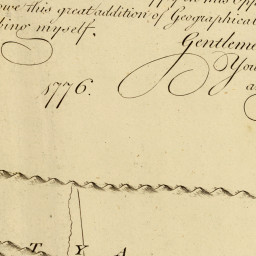 owe this great addition of Geographical
bing myself.
Gentleme
You
1776.
a
T Y A